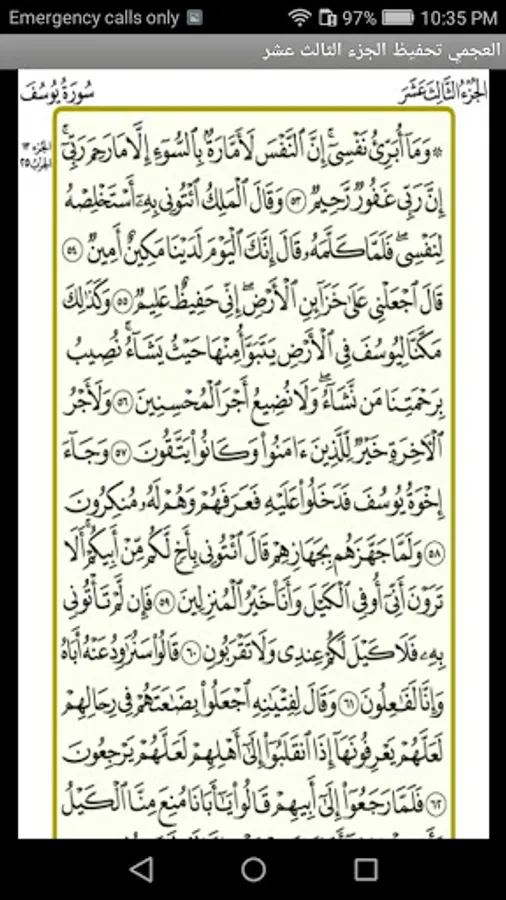 Emergency calls only 97% 10:35 PM
العجمي تحفيظ الجزء الثالث عشر
الجُزْءُ الثَّالِثَ عَشَرَ سُورَةُ يُوسُفَ
الجزء ١٣
الحزب ٢٥
* وَمَآ أُبَرِّئُ نَفْسِىٓۚ إِنَّ ٱلنَّفْسَ لَأَمَّارَةٌۢ بِٱلسُّوٓءِ إِلَّا مَا رَحِمَ رَبِّىٓۚ
إِنَّ رَبِّى غَفُورٌ رَّحِيمٌ ٥٣ وَقَالَ ٱلْمَلِكُ ٱئْتُونِى بِهِۦٓ أَسْتَخْلِصْهُ
لِنَفْسِىۖ فَلَمَّا كَلَّمَهُۥ قَالَ إِنَّكَ ٱلْيَوْمَ لَدَيْنَا مَكِينٌ أَمِينٌ ٥٤
قَالَ ٱجْعَلْنِى عَلَىٰ خَزَآئِنِ ٱلْأَرْضِۖ إِنِّى حَفِيظٌ عَلِيمٌ ٥٥ وَكَذَٰلِكَ
مَكَّنَّا لِيُوسُفَ فِى ٱلْأَرْضِ يَتَبَوَّأُ مِنْهَا حَيْثُ يَشَآءُۚ نُصِيبُ
بِرَحْمَتِنَا مَن نَّشَآءُۖ وَلَا نُضِيعُ أَجْرَ ٱلْمُحْسِنِينَ ٥٦ وَلَأَجْرُ
ٱلْءَاخِرَةِ خَيْرٌ لِّلَّذِينَ ءَامَنُوا۟ وَكَانُوا۟ يَتَّقُونَ ٥٧ وَجَآءَ
إِخْوَةُ يُوسُفَ فَدَخَلُوا۟ عَلَيْهِ فَعَرَفَهُمْ وَهُمْ لَهُۥ مُنكِرُونَ
٥٨ وَلَمَّا جَهَّزَهُم بِجَهَازِهِمْ قَالَ ٱئْتُونِى بِأَخٍ لَّكُم مِّنْ أَبِيكُمْۚ أَلَا
تَرَوْنَ أَنِّىٓ أُوفِى ٱلْكَيْلَ وَأَنَا۠ خَيْرُ ٱلْمُنزِلِينَ ٥٩ فَإِن لَّمْ تَأْتُونِى
بِهِۦ فَلَا كَيْلَ لَكُمْ عِندِى وَلَا تَقْرَبُونِ ٦٠ قَالُوا۟ سَنُرَٰوِدُ عَنْهُ أَبَاهُ
وَإِنَّا لَفَٰعِلُونَ ٦١ وَقَالَ لِفِتْيَٰنِهِ ٱجْعَلُوا۟ بِضَٰعَتَهُمْ فِى رِحَالِهِمْ
لَعَلَّهُمْ يَعْرِفُونَهَآ إِذَا ٱنقَلَبُوٓا۟ إِلَىٰٓ أَهْلِهِمْ لَعَلَّهُمْ يَرْجِعُونَ
٦٢ فَلَمَّا رَجَعُوٓا۟ إِلَىٰٓ أَبِيهِمْ قَالُوا۟ يَٰٓأَبَانَا مُنِعَ مِنَّا ٱلْكَيْلُ